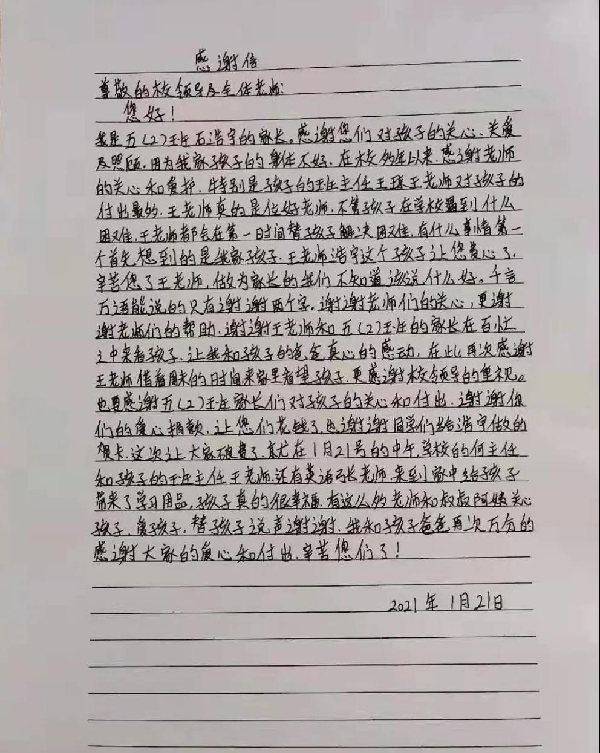 感谢信
尊敬的校领导及全体老师:
您好!
我是五(2)班石浩宇的家长。感谢您们对孩子的关心、关爱
及照顾,因为我家孩子的身体不好,在校多年以来,感谢老师
的关心和爱护,特别是孩子的班主任王 老师对孩子的
付出最多,王老师真的是位好老师,不管孩子在学校遇到什么
困难,王老师都会在第一时间替孩子解决困难,有什么事情第一
个首先想到的是我家孩子,王老师浩宇这个孩子让您费心了,
辛苦您了王老师,做为家长的我们不知道该说什么好。千言
万语能说的只有谢谢两个字。谢谢老师们的关心,更谢
谢老师们的帮助,谢谢王老师和五(2)班的家长在百忙
之中来看孩子,让我和孩子的爸爸真心的感动,在此再次感谢
王老师借着周末的时间来家里看望孩子,更感谢校领导的重视。
也要感谢五(2)班家长们对孩子的关心和付出,谢谢你
们的爱心捐款,让您们花钱了,也谢谢同学们给浩宇做的
贺卡,这次让大家破费了,尤在1月21号的中午,学校的何主任
和孩子的班主任王老师,还有英语张老师,来到家中给孩子
带来了学习用品,孩子真的很幸福,有这么多老师和叔叔阿姨关心
孩子,爱孩子,替孩子说声谢谢,我和孩子爸爸再次万分的
感谢大家的爱心和付出,辛苦您们了!
2021年1月21日